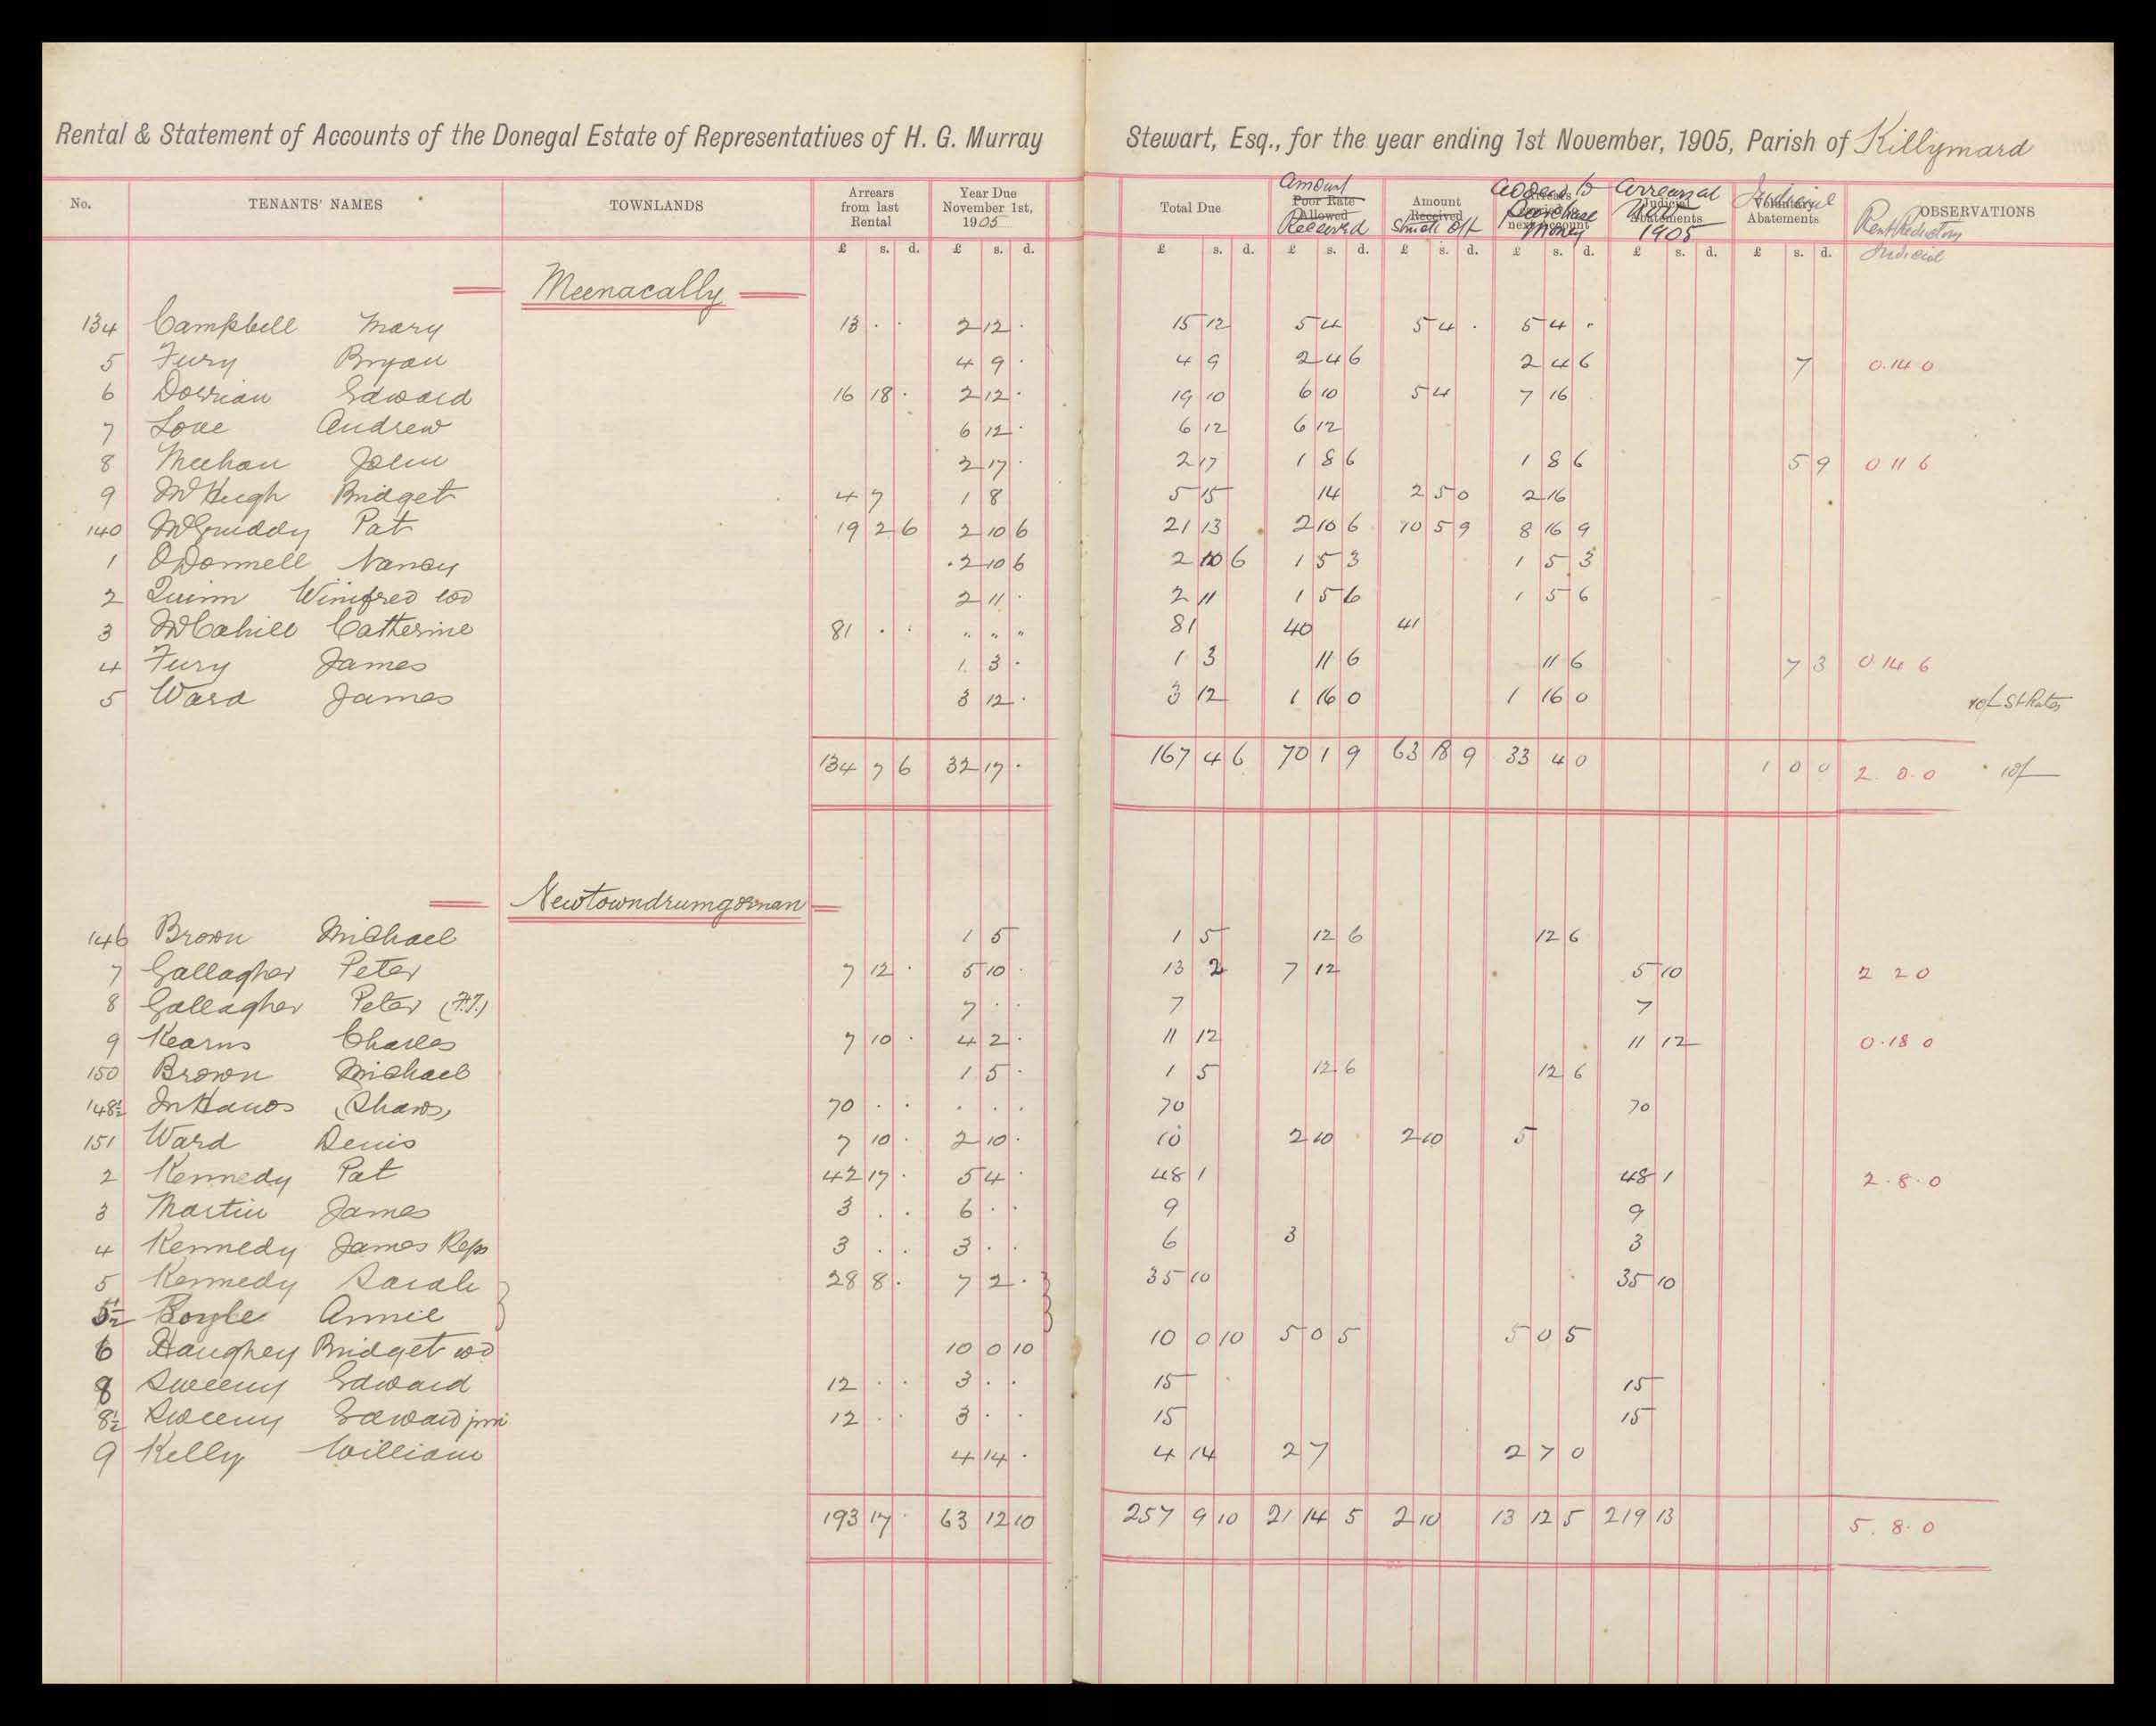 Rental & Statement of Accounts of the Donegal Estate of Representatives of H. G. Murray Stewart, Esq., for the year ending 1st November, 1905, Parish of Killymard
No. TENANTS' NAMES TOWNLANDS Arrears from last Rental Year Due November 1st, 1905 Total Due Amount Poor Rate Allowed Received Amount Received Struck Off Added to Purchase Money Arrears at Judicial Abatements Novr 1905 Judicial Abatements Rent Reductions Judicial OBSERVATIONS
£ s. d. £ s. d. £ s. d. £ s. d. £ s. d. £ s. d. £ s. d. £ s. d.
Meenacally
134 Campbell Mary 13 . . 2 12 . 15 12 5 4 5 4 . 5 4 .
5 Fury Bryan 4 9 . 4 9 2 4 6 2 4 6 7 0.14 0
6 Dorrian Edward 16 18 . 2 12 . 19 10 6 10 5 4 7 16
7 Love Andrew 6 12 . 6 12 6 12
8 Meehan John 2 17 . 2 17 1 8 6 1 8 6 5 9 0 11 6
9 McHugh Bridget 4 7 1 8 5 15 14 2 5 0 2 16
140 McGruddy Pat 19 2 6 2 10 6 21 13 2 10 6 10 5 9 8 16 9
1 ODonnell Nancy 2 10 6 2 10 6 1 5 3 1 5 3
2 Quinn Winifred wd 2 11 . 2 11 1 5 6 1 5 6
3 McCahill Catherine 81 . . " " " 81 40 41
4 Fury James 1 3 . 1 3 11 6 11 6 7 3 0 14 6
5 Ward James 3 12 . 3 12 1 16 0 1 16 0 10/- St Rates
134 7 6 32 17 . 167 4 6 70 1 9 63 18 9 33 4 0 1 0 0 2. 0.0 10/-
Newtowndrumgorman
146 Brown Michael 1 5 1 5 12 6 12 6
7 Gallagher Peter 7 12 . 5 10 . 13 2 7 12 5 10 2 2 0
8 Gallagher Peter (F.J.) 7 . . 7 7
9 Kearns Charles 7 10 . 4 2 . 11 12 11 12 0.18 0
150 Brown Michael 1 5 . 1 5 12 6 12 6
148½ In Hands (Shaws) 70 . . . . . 70 70
151 Ward Denis 7 10 . 2 10 . 10 2 10 2 10 5
2 Kennedy Pat 42 17 . 5 4 . 48 1 48 1 2.8.0
3 Martin James 3 . . 6 . . 9 9
4 Kennedy James Reps 3 . . 3 . . 6 3 3
5 Kennedy Sarah 28 8 . 7 2 . 35 10 35 10
5½ Boyle Annie
6 Haughey Bridget wd 10 0 10 10 0 10 5 0 5 5 0 5
8 Sweeny Edward 12 . . 3 . . 15 15
8½ Sweeny Edward jnr 12 . . 3 . . 15 15
9 Kelly William 4 14 . 4 14 2 7 2 7 0
193 17 . 63 12 10 257 9 10 21 14 5 2 10 13 12 5 219 13 5.8.0